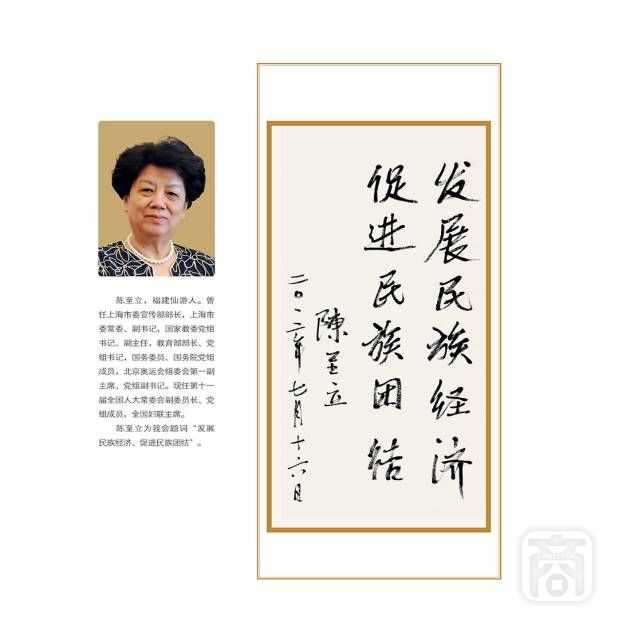 陈至立，福建仙游人。曾
任上海市委宣传部部长，上海市
委常委、副书记，国家教委党组
书记、副主任，教育部部长、党
组书记，国务委员、国务院党组
成员，北京奥运会组委会第一副
主席、党组副书记。现任第十一
届全国人大常委会副委员长、党
组成员，全国妇联主席。
陈至立为我会题词“发展
民族经济、促进民族团结”。
发展民族经济
促进民族团结
陳至立
二〇一二年七月十六日
商